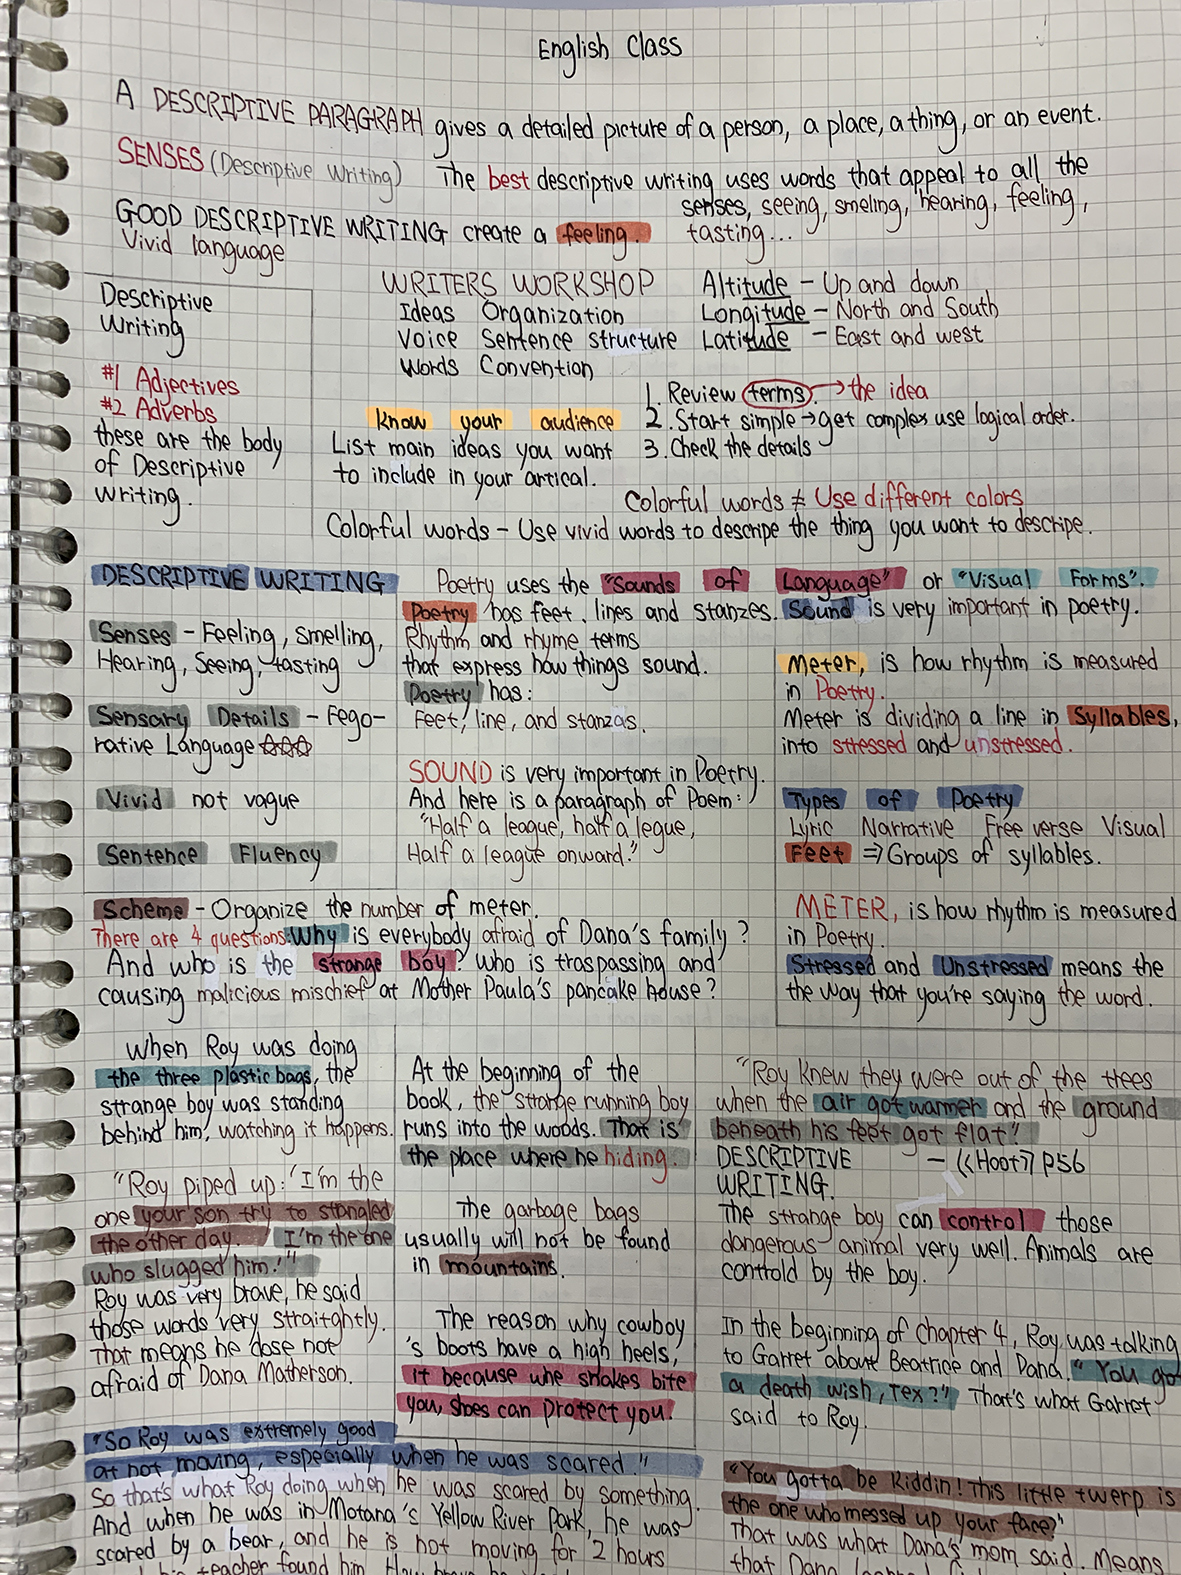 English Class
A DESCRIPTIVE PARAGRAPH gives a detailed picture of a person, a place, a thing, or an event.
SENSES (Descriptive Writing) The best descriptive writing uses words that appeal to all the
senses, seeing, smeling, hearing, feeling,
tasting...
GOOD DESCRIPTIVE WRITING create a feeling.
Vivid language
Descriptive
Writing
#1 Adjectives
#2 Adverbs
these are the body
of Descriptive
writing.
WRITERS WORKSHOP
Ideas Organization
Voice Sentence structure
Words Convention
Altitude - Up and down
Longitude - North and South
Latitude - East and west
Know your audience
List main ideas you want
to include in your artical.
1. Review terms. → the idea
2. Start simple → get complex use logical order.
3. Check the details
Colorful words ≠ Use different colors
Colorful words - Use vivid words to descripe the thing you want to descripe.
DESCRIPTIVE WRITING
Senses - Feeling, smelling,
Hearing, Seeing, tasting
Sensary Details - Fego-
rative Language ☆☆☆
Vivid not vague
Sentence Fluency
Poetry uses the "Sounds of Language" or "Visual Forms".
Poetry has feet, lines and stanzes. Sound is very important in poetry.
Rhythm and rhyme terms
that express how things sound.
Poetry has:
Feet, line, and stanzas.
SOUND is very important in Poetry.
And here is a paragraph of Poem:
"Half a league, half a legue,
Half a league onward."
Meter, is how rhythm is measured
in Poetry.
Meter is dividing a line in Syllables,
into stressed and unstressed.
Types of Poetry
Lyric Narrative Free verse Visual
Feet ⇒ Groups of syllables.
METER, is how rhythm is measured
in Poetry.
Stressed and Unstressed means the
the way that you're saying the word.
Scheme - Organize the number of meter.
There are 4 questions: Why is everybody afraid of Dana's family?
And who is the strange boy? who is traspassing and
causing malicious mischief at Mother Paula's pancake house?
When Roy was doing
the three plastic bags, the
strange boy was standing
behind him, watching it happens.
"Roy piped up: 'I'm the
one your son try to stangled
the other day. I'm the one
who slugged him!'"
Roy was very brave, he said
those words very straitghtly.
That means he dose not
afraid of Dana Matherson.
At the beginning of the
book, the strange running boy
runs into the woods. That is
the place where he hiding.
The garbage bags
usually will not be found
in mountains.
The reason why cowboy
's boots have a high heels,
it because whe snakes bite
you, shoes can protect you.
"Roy knew they were out of the trees
when the air got warmer and the ground
beneath his feet got flat."
DESCRIPTIVE - 《Hoot》 P56
WRITING.
The strange boy can control those
dangerous animal very well. Animals are
controld by the boy.
In the beginning of chapter 4, Roy was talking
to Garret about Beatrice and Dana. "You got
a death wish, Tex?" That's what Garret
said to Roy.
"So Roy was extremely good
at not moving, especially when he was scared."
So that's what Roy doing when he was scared by something.
And when he was in Motana's Yellow River Park, he was
scared by a bear, and he is not moving for 2 hours
teacher found him.
"You gotta be kiddin! This little twerp is
the one who messed up your face?"
That was what Dana's mom said. Means
that Dana